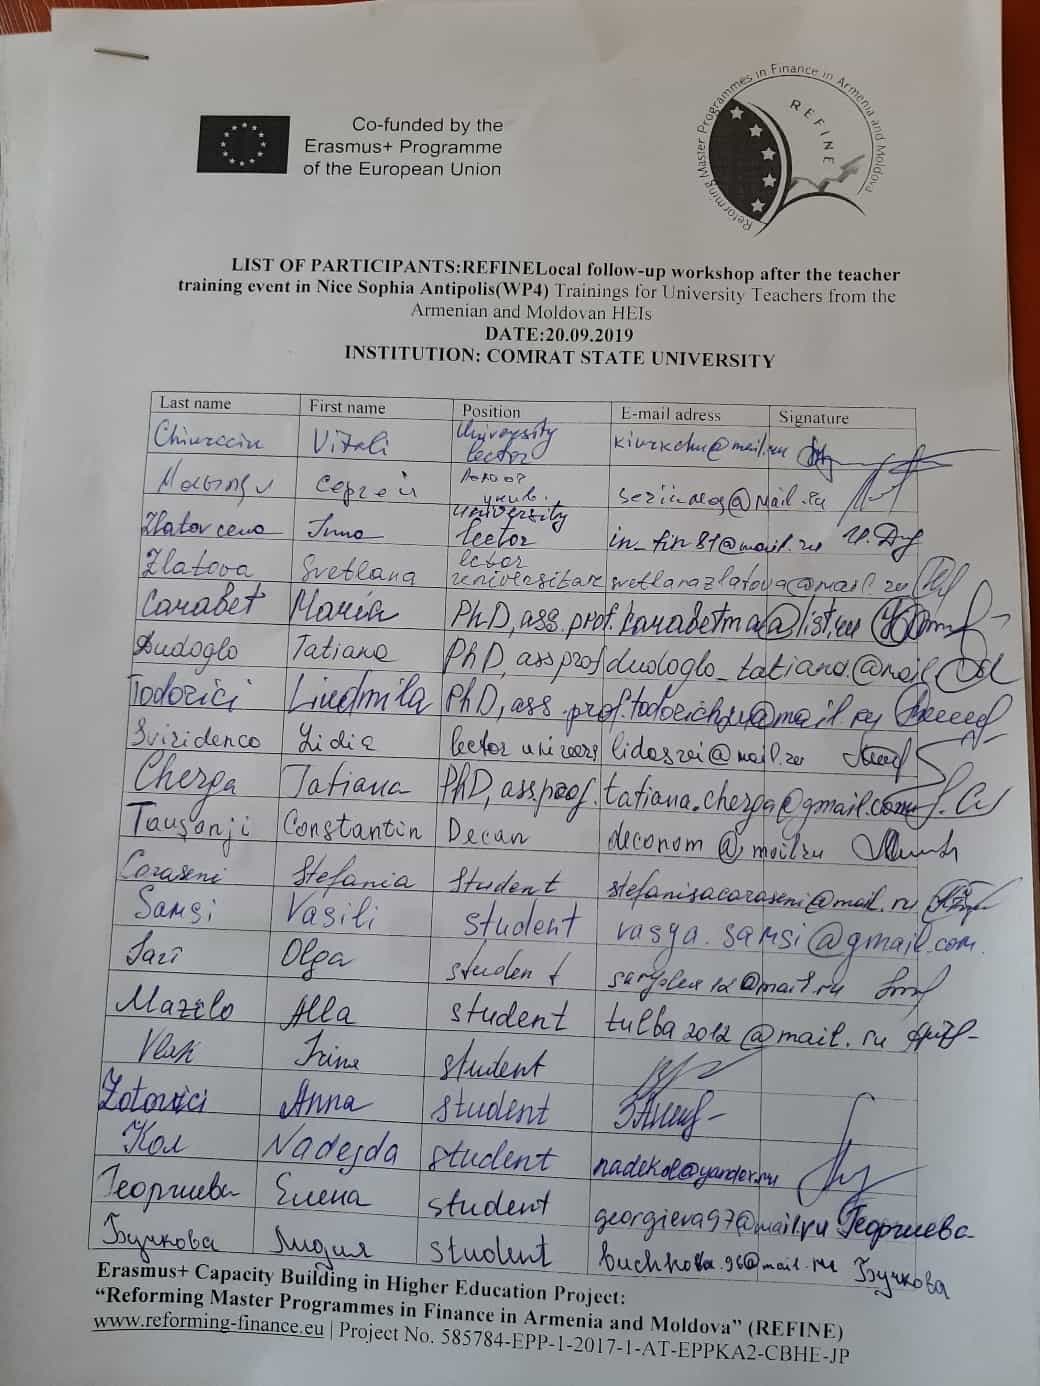 Co-funded by the
Erasmus+ Programme
of the European Union
Reforming Master Programmes in Finance in Armenia and Moldova
REFINE
LIST OF PARTICIPANTS:REFINELocal follow-up workshop after the teacher
training event in Nice Sophia Antipolis(WP4) Trainings for University Teachers from the
Armenian and Moldovan HEIs
DATE:20.09.2019
INSTITUTION: COMRAT STATE UNIVERSITY
Last name First name Position E-mail adress Signature
Vitali University lector
Сергей
Inna University lector in_fin81@mail.ru
Zlatova Svetlana lector universitar svetlanazlatova@mail.ru
Carabet Maria PhD, ass.prof. karabetma@list.ru
Dudoglo Tatiana PhD, ass prof dudoglo_tatiana@mail
Todorici Liudmila PhD, ass.prof. todorichlu@mail.ry
Sviridenco Lidia lector
Cherga Tatiana PhD, ass.prof. tatiana.cherga@gmail.com
Tauşanji Constantin Decan deconom@mail.ru
Coraseni Stefania student stefanisacoraseni@mail.ru
Samsi Vasili student vasya.samsi@gmail.com.
Sari Olga student
Mazilo Alla student tulba2012@mail.ru
Vlak Irina student
Zotovici Anna student
Кол Nadejda student nadekol@yandex.ru
Георгиева Елена student georgieva97@mail.ru Георгиева
Бучкова Лидия student buchkova.96@mail.ru Бучкова
Erasmus+ Capacity Building in Higher Education Project:
“Reforming Master Programmes in Finance in Armenia and Moldova” (REFINE)
www.reforming-finance.eu | Project No. 585784-EPP-1-2017-1-AT-EPPKA2-CBHE-JP